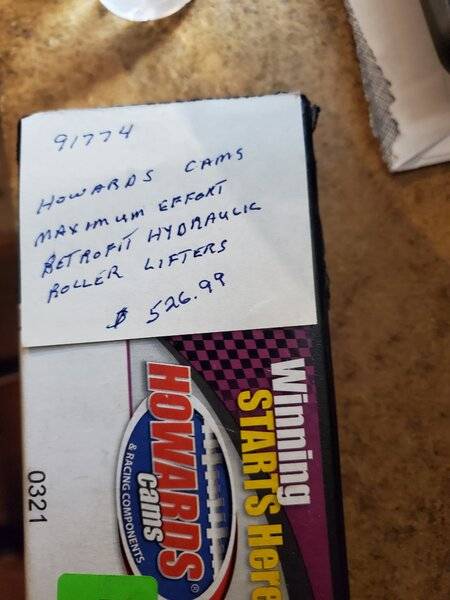 91774
HOWARDS CAMS
MAXIMUM EFFORT
RETROFIT HYDRAULIC
ROLLER LIFTERS
$ 526.99
Winning
STARTS Here
HOWARDS®
cams
& RACING COMPONENTS
0321